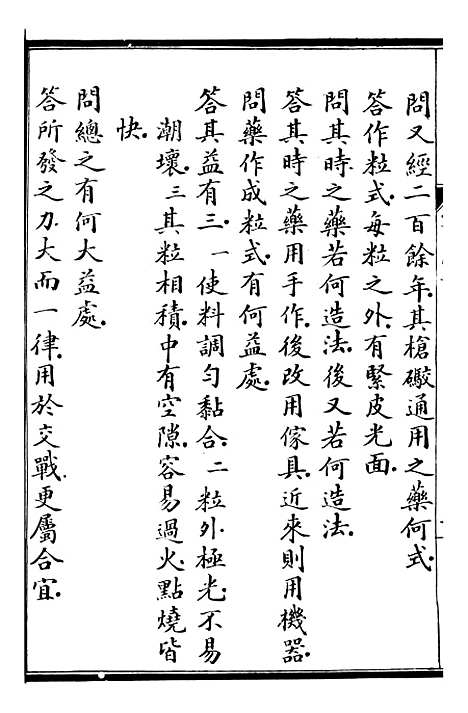 問又經二百餘年.其槍礮通用之藥何式.
答作粒式.每粒之外.有緊皮光面.
問其時之藥若何造法.後又若何造法.
答其時之藥用手作.後改用傢具.近來則用機器.
問藥作成粒式.有何益處.
答其益有三.一使料調勻黏合.二粒外極光.不易
潮壞.三其粒相積.中有空隙.容易過火.點燒皆
快.
問總之有何大益處.
答所發之力.大而一律.用於交戰.更屬合宜.